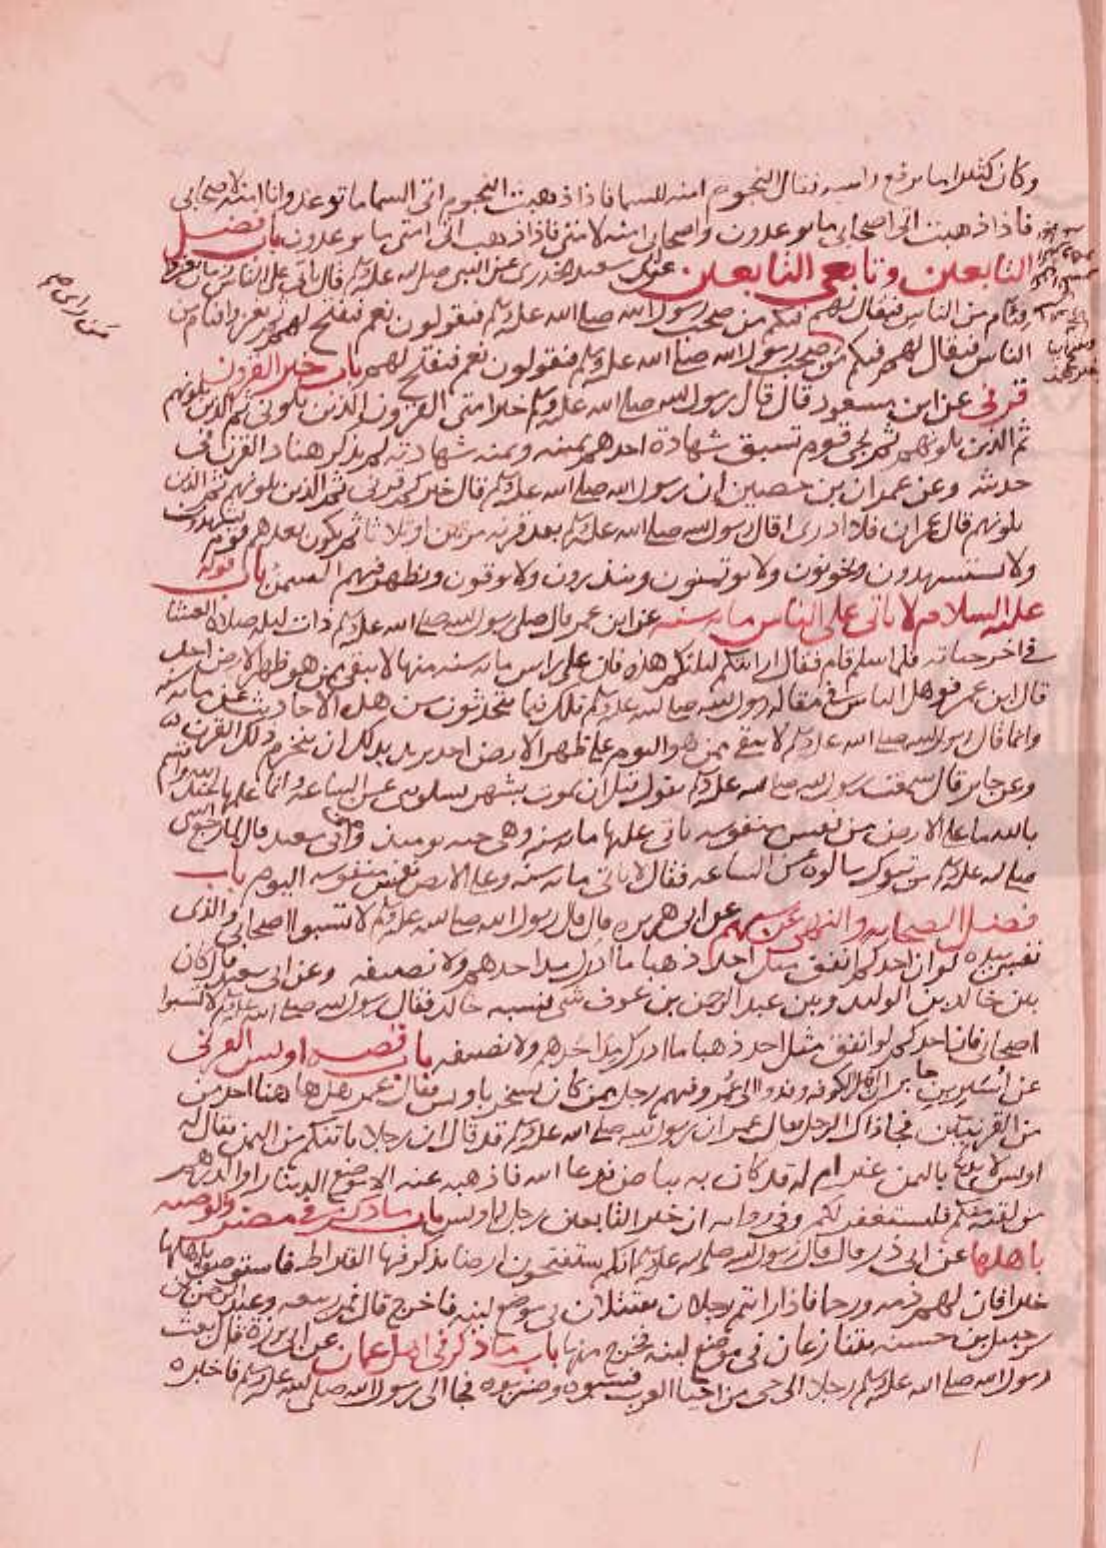 وكان كثيرا ما يرفع راسه فقال النجوم امنة للسما فاذا ذهبت النجوم اتى السما ما توعد وانا امنة لاصحابي
فاذا ذهبت اتى اصحابي ما يوعدون واصحابي امنة لامتي فاذا ذهب اصحابي اتى امتي ما يوعدون باب فضل
التابعين وتابعي التابعين عن ابي سعيد الخدري عن النبي صلى الله عليه وسلم قال ياتي على الناس زمان يغزوا
فئام من الناس فيقال لهم فيكم من صحب رسول الله صلى الله عليه وسلم فيقولون نعم فيفتح لهم ثم يغزوا فئام من
الناس فيقال لهم فيكم من صحب رسول الله صلى الله عليه وسلم فيقولون نعم فيفتح لهم باب خير القرون
قرني عن ابن مسعود قال قال رسول الله صلى الله عليه وسلم خير امتي القرون الذين يلوني ثم الذين يلونهم
ثم الذين يلونهم ثم يجي قوم تسبق شهادة احدهم يمينه ويمينه شهادته لم يذكر هناد القرن في
حديثه وعن عمران بن حصين ان رسول الله صلى الله عليه وسلم قال خيركم قرني ثم الذين يلونهم ثم الذين
يلونهم قال عمران فلا ادري اقال رسول الله صلى الله عليه وسلم بعد قرنه مرتين او ثلاثا ثم يكون بعدهم قوم يشهدون
ولا يستشهدون ويخونون ولا يوتمنون وينذرون ولا يوفون ويظهر فيهم السمن باب قوله
عليه السلام لا ياتي على الناس ماية سنه عن ابن عمر قال صلى رسول الله صلى الله عليه وسلم ذات ليله صلاة العشا
في اخر حياته فلما سلم قام فقال ارايتكم ليلتكم هذه فان على راس ماية سنه منها لا يبقى ممن هو على ظهر الارض احد
قال ابن عمر فوهل الناس في مقالة رسول الله صلى الله عليه وسلم تلك فيما يتحدثون من هذه الاحاديث عن ماية سنه
وانما قال رسول الله صلى الله عليه وسلم لا يبقى ممن هو اليوم على ظهر الارض احد يريد بذلك ان ينخرم ذلك القرن
وعن جابر قال سمعت رسول الله صلى الله عليه وسلم يقول قبل ان يموت بشهر يسلوني عن الساعة وانما علمها عند الله واقسم
بالله ما على الارض من نفس منفوسه ياتي عليها ماية سنه وهي حيه يومئذ وعن ابي سعيد قال لما رجع النبي
صلى الله عليه وسلم من تبوك سالوه عن الساعه فقال لا ياتي ماية سنه وعلى الارض نفس منفوسه اليوم باب
فضل الصحابه والنهي عن سبهم عن ابي هريره قال قال رسول الله صلى الله عليه وسلم لا تسبوا اصحابي والذي
نفسي بيده لو ان احدكم انفق مثل احد ذهبا ما ادرك مد احدهم ولا نصيفه وعن ابي سعيد قال كان
بين خالد بن الوليد وبين عبد الرحمن بن عوف شي فسبه خالد فقال رسول الله صلى الله عليه وسلم لا تسبوا
اصحابي فان احدكم لو انفق مثل احد ذهبا ما ادرك مد احدهم ولا نصيفه باب قصه اويس القرني
عن اسير بن جابر ان اهل الكوفه وفدوا الى عمر وفيهم رجل ممن كان يسخر باويس فقال عمر هل ها هنا احد من
من القرنيين فجا ذاك الرجل فقال عمر ان رسول الله صلى الله عليه وسلم قد قال ان رجلا ياتيكم من اليمن يقال له
اويس لا يدع باليمن غير ام له قد كان به بياض فدعا الله فاذهبه عنه الا موضع الدينار او الدرهم
من لقيه منكم فليستغفر لكم وفي روايه ان خير التابعين رجل له اويس باب ما ذكر في مصر والوصيه
باهلها عن ابي ذر قال قال رسول الله صلى الله عليه وسلم انكم ستفتحون ارضا يذكر فيها القيراط فاستوصوا باهلها
خيرا فان لهم ذمه ورحما فاذا رايتم رجلان يقتتلان في موضع لبنه فاخرج قال فمر بربيعه وعبد الرحمن بن
شرحبيل بن حسنه يتنازعان في موضع لبنه فخرج منها باب ما ذكر في اهل عمان عن ابي برزة قال بعث
رسول الله صلى الله عليه وسلم رجلا الى حي من احيا العرب فسبوه وضربوه فجا الى رسول الله صلى الله عليه وسلم فاخبره